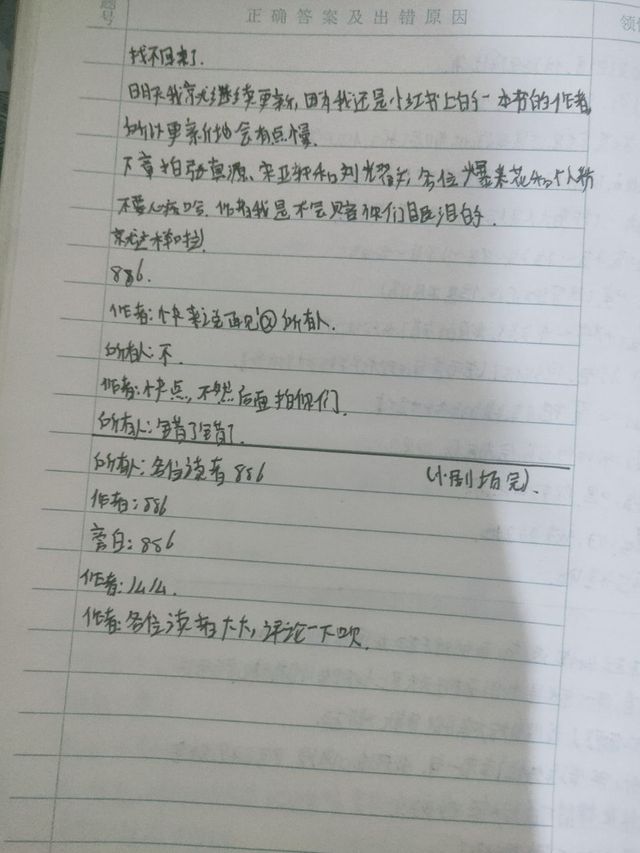 题号 正确答案及出错原因
找不回来了.
明天我就继续更新,因为我还是小红书上的一本书的作者,
所以更新地会有点慢.
下章拍张真源、宋亚轩和刘耀文,各位爆米花和个人粉
不要心疼哈.作者我是不会赔你们眼泪的.
就这样啦!
886.
作者:快来说再见@所有人.
所有人:不.
作者:快点,不然后面拍你们.
所有人:错了错了.
所有人:各位读者886 (小剧场完).
作者:886
旁白:886
作者:1414.
作者:各位读者大大,评论一下呗.